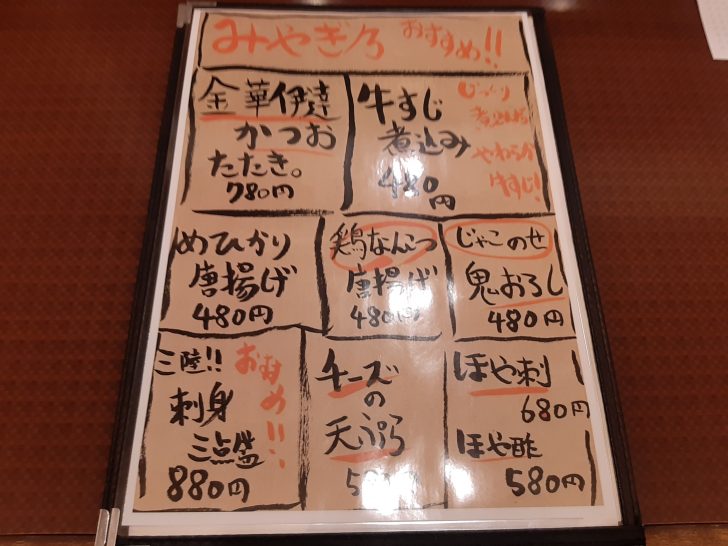 みやぎ乃 おすすめ!!
金華伊達
かつお
たたき。
780円
牛すじ
煮込み
480円
じっくり
煮込んだ
やわらか
牛すじ!
めひかり
唐揚げ
480円
鶏なんこつ
唐揚げ
480円
じゃこのせ
鬼おろし
480円
三陸!!
刺身
三点盛
880円
おすすめ!!
チーズ
の
天ぷら
ほや刺
680円
ほや酢
580円